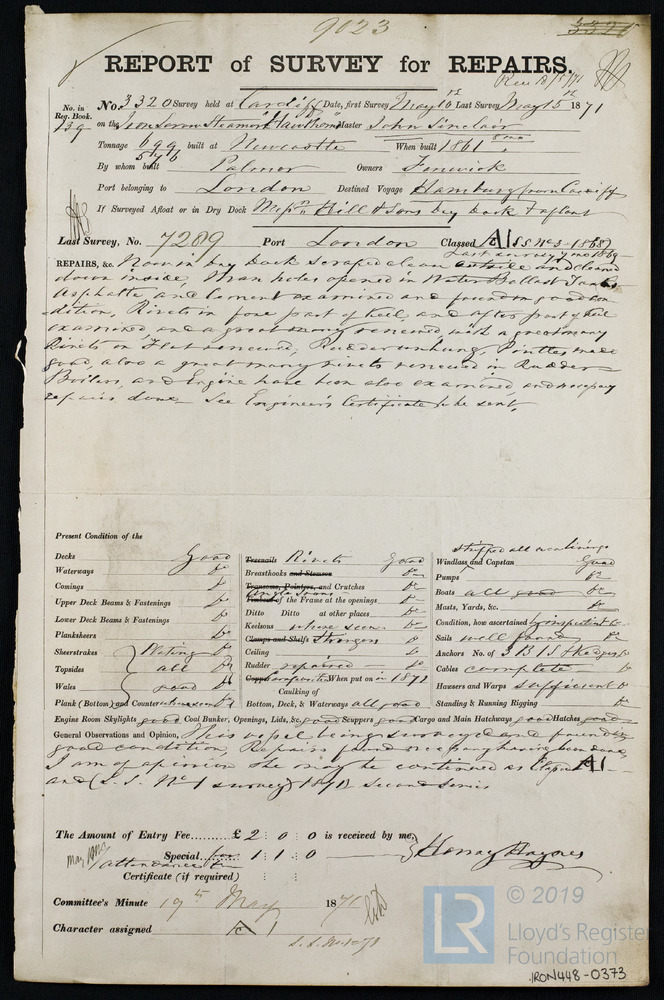 9023
3321
REPORT of SURVEY for REPAIRS.
Rec 18/5/71
No. in Reg. Book. No. 3320 Survey held at Cardiff Date, first Survey May 10th Last Survey May 15th 1871
139 on the Iron Screw Steamer "Hawthorn" Master John Sinclair
Tonnage 699 built at Newcastle When built 1861
546
By whom built Palmer Owners Fenwick
Port belonging to London Destined Voyage Hamburg from Cardiff
If Surveyed Afloat or in Dry Dock Messrs Hill & Sons Dry Dock & afloat
Last Survey, No. 7289 Port London Classed A1 SS No 3-1868
Last survey 1869
REPAIRS, &c. Now in Dry Dock scraped clean outside and cleaned
down inside, Man holes opened in Water Ballast Tanks
Asphalte and Cement examined and found in good con
dition, Rivets in fore part of keel and after part of keel
examined and a great many renewed with a great many
Rivets on Flat renewed, Rudder unhung, Pintles made
good, also a great many rivets renewed in Rudder
Boilers, and Engine have been also examined and necessary
repairs done - See Engineer's Certificate to be sent.
Present Condition of the
Decks Good
Waterways Do
Comings Do
Upper Deck Beams & Fastenings Do
Lower Deck Beams & Fastenings Do
Planksheers Do
Sheerstrakes Plating Do
Topsides all Do
Wales good Do
Plank (Bottom) and Counter where seen Do
Treenails Rivets Good
Breasthooks and Stemson Do
Transoms, Pointers, and Crutches Do
Angle Irons
Timbers of the Frame at the openings Do
Ditto Ditto at other places Do
Keelsons where seen Do
Clamps and Shelfs Stringers Do
Ceiling Do
Rudder repaired Do
Copper Composition When put on in 1871
Caulking of
Bottom, Deck, & Waterways all good
stripped all new linings
Windlass and Capstan Good
Pumps Do
Boats all good Do
Masts, Yards, &c. Do
Condition, how ascertained by inspection Do
Sails well found Do
Anchors No. of 3 B 1 S & Kedges Do
Cables complete Do
Hawsers and Warps sufficient Do
Standing & Running Rigging Do
Engine Room Skylights good Coal Bunker, Openings, Lids, &c. good Scuppers good Cargo and Main Hatchways good Hatches good
General Observations and Opinion, This vessel being surveyed and found in
good condition, Repairs found necessary having been done,
I am of opinion she may be continued as Classed A1
and (S.S. No 1 survey 1871) Second Series
The Amount of Entry Fee......... £ 2 : 0 : 0 is received by me,
Special 1 : 1 : 0 Henry Haynes
attendance fee
Certificate (if required)
Committee's Minute 19th May 1871
Character assigned A 1
S.S. No 1-71
LR
© 2019
Lloyd's Register
Foundation
IRON448-0373